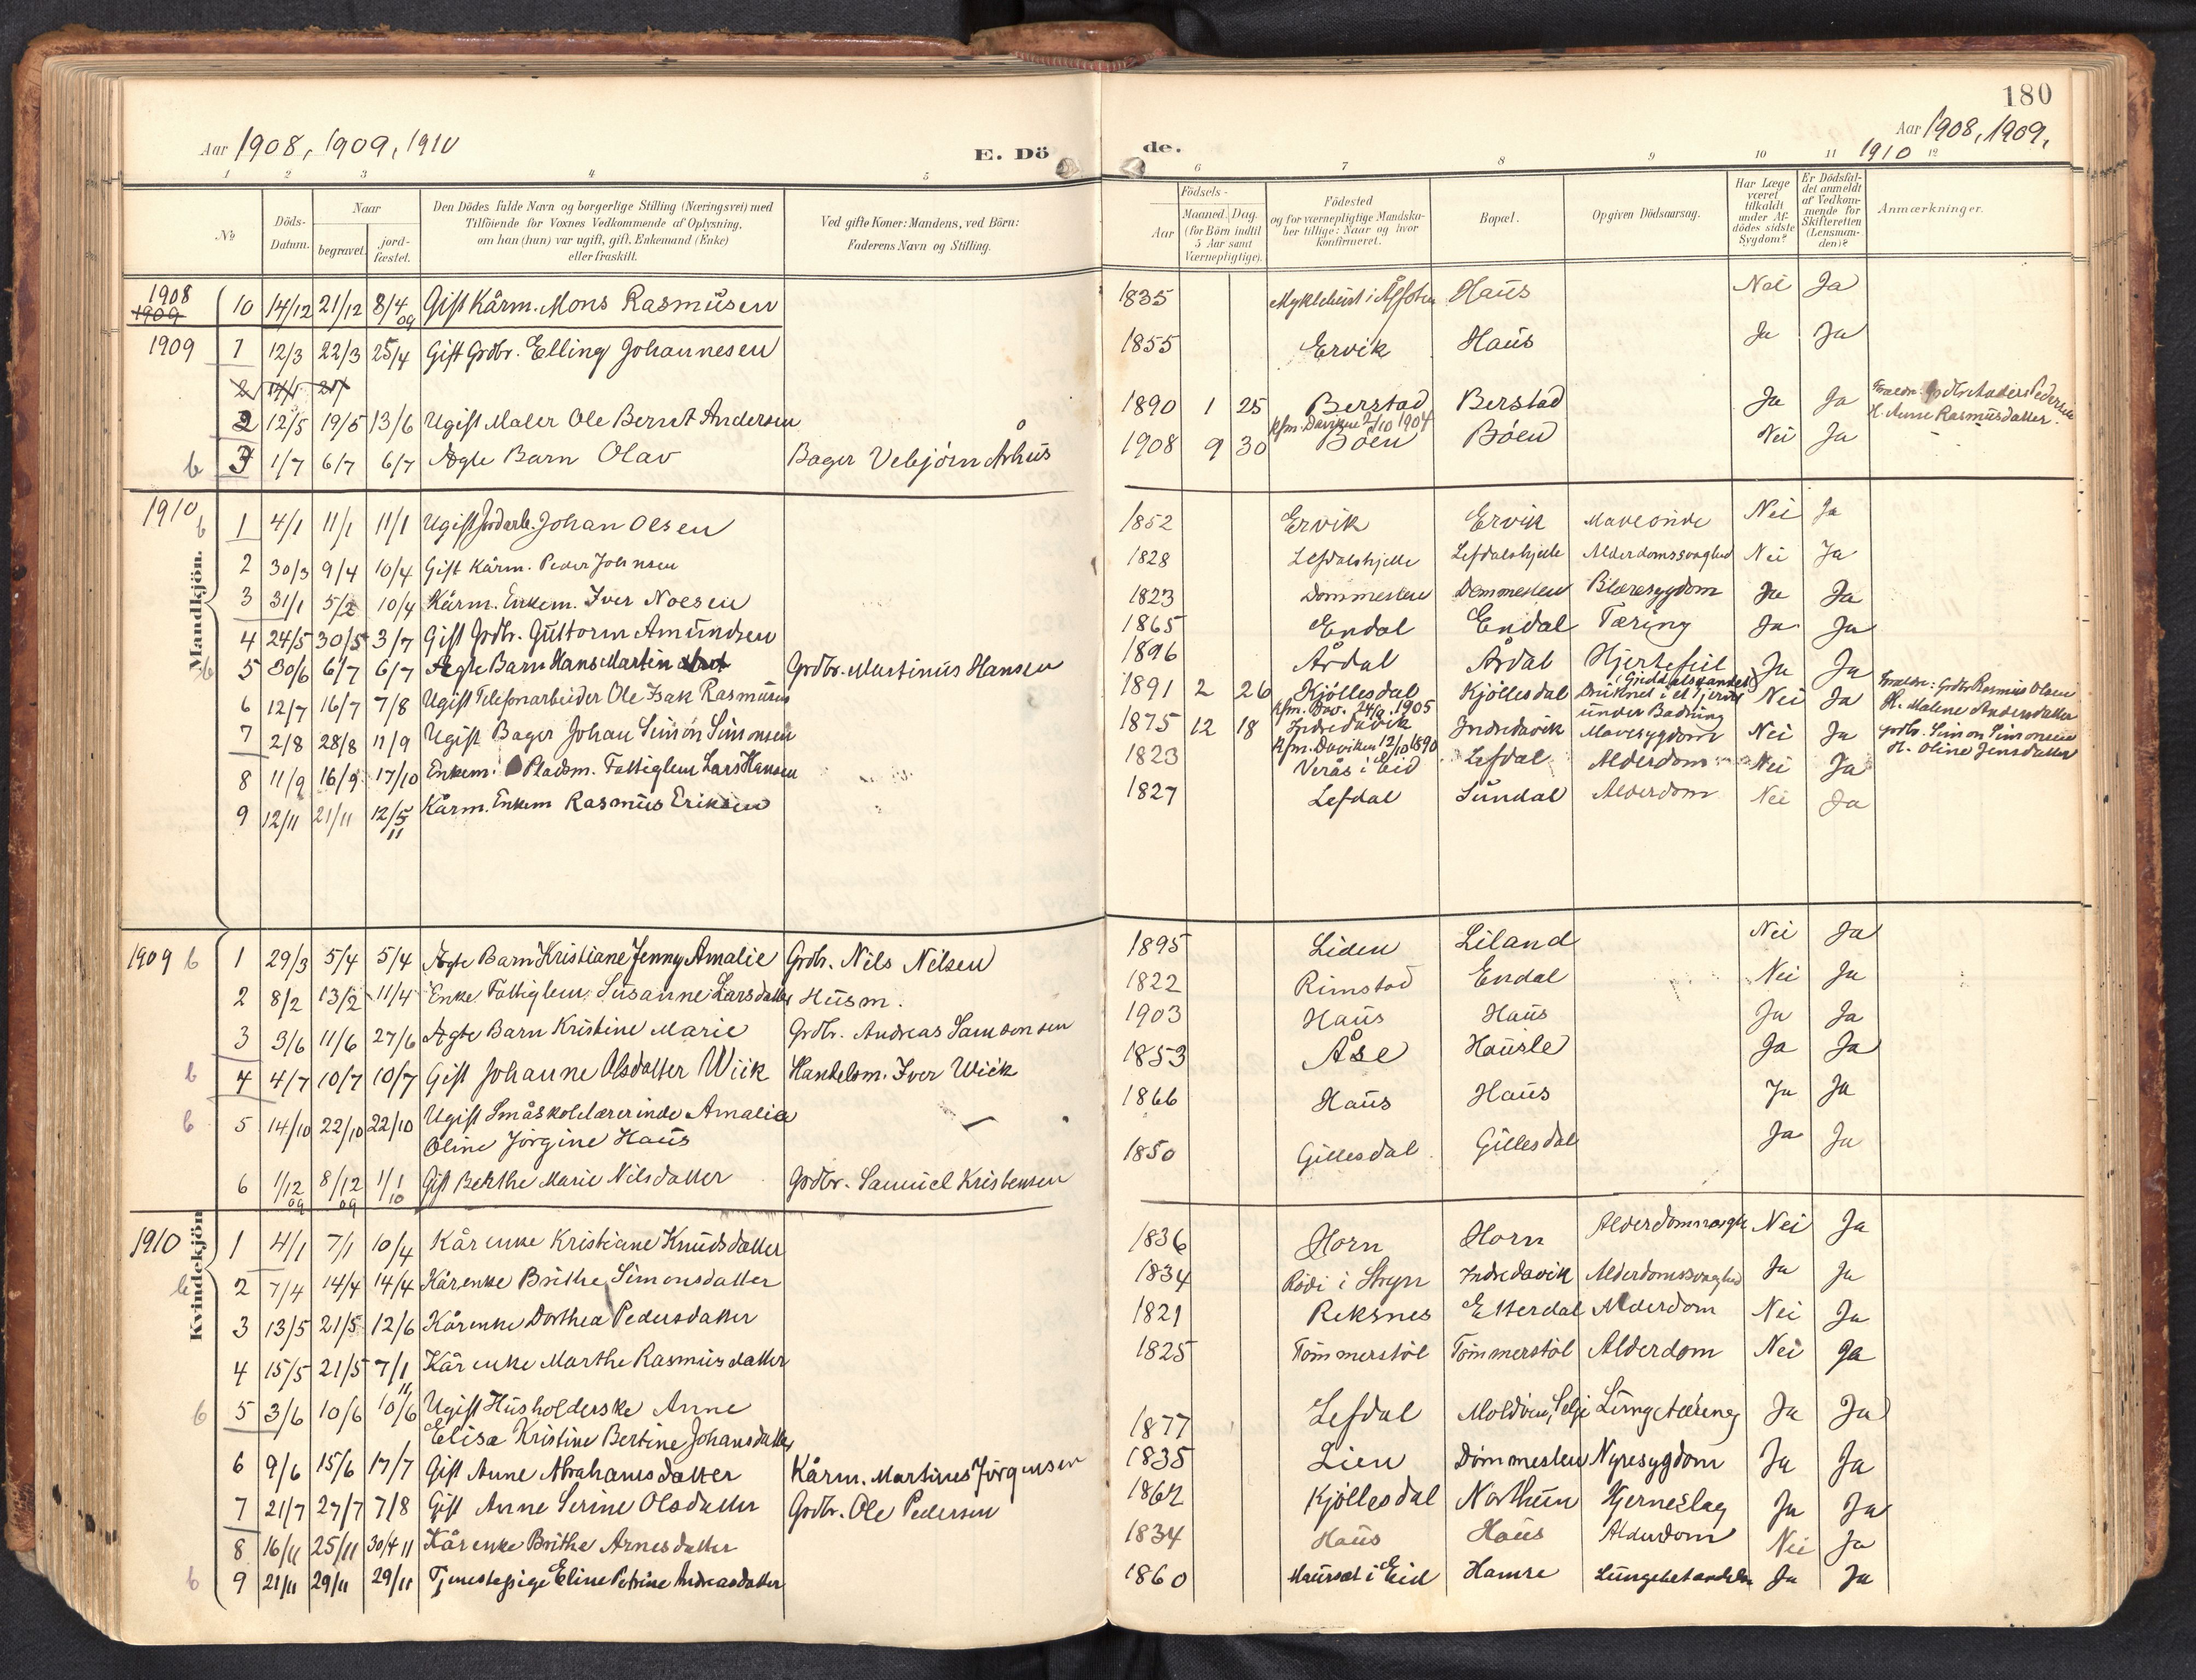 180
Aar 1908, 1909, 1910
E. Dö
de.
Aar 1908, 1909,
1910
1 2 3 4 5 6 7 8 9 10 11 12
No
Döds-Datum.
Naar
begravet.
jord-fæstet.
Den Dödes fulde Navn og borgerlige Stilling (Næringsvei) med
Tilföiende for Voxnes Vedkommende af Oplysning,
om han (hun) var ugift, gift, Enkemand (Enke)
eller fraskilt.
Ved gifte Koner: Mandens, ved Börn:
Faderens Navn og Stilling.
Födsels-
Aar
Maaned. Dag.
(for Börn indtil 5 Aar samt Værnepligtige).
Födested
og for værnepligtige Mandskaber tillige: Naar og hvor konfirmeret.
Bopæl.
Opgiven Dödsaarsag.
Har Læge været tilkaldt under Afdödes sidste Sygdom?
Er Dödsfaldet anmeldt af Vedkommende for Skifteretten (Lensmanden)?
Anmærkninger.
Mandkjön.
1908
1909
10 14/12 21/12 8/4 09 Gift Kårm. Mons Rasmusen 1835 Myklebust i Haus Nei Ja
1909 1 12/3 22/3 25/4 Gift Grdbr. Elling Johannesen 1855 Ervik Haus Ja Ja
2 12/5 19/5 13/6 Ugift Maler Ole Bernt Andersen 1890 1 25 Berstad Kfm. Daviken 2/10 1904 Berstad Ja Ja Forældr: Grdbr. Anders Pedersen H. Anne Rasmusdatter.
b 3 1/7 6/7 6/7 Ægte Barn Olav Bager Vebjörn Århus 1908 9 30 Böen Böen Nei Ja
1910 b 1 4/1 11/1 11/1 Ugift Jordarb. Johan Olsen 1852 Ervik Ervik Maveonde Nei Ja
2 30/3 9/4 10/4 Gift Kårm. Peder Johnsen 1828 Lefdalshjelle Lefdalshjelle Alderdomssvaghed Nei Ja
3 31/1 5/2 10/4 Kårm. Enkem. Iver Noesen 1823 Dommesteen Dommesteen Blæresygdom Ja Ja
4 24/5 30/5 3/7 Gift Grdbr. Guttorm Amundsen 1865 Endal Endal Tæring Ja Ja
b 5 30/6 6/7 6/7 Ægte Barn Hans Martin Grdbr. Martinus Hansen 1896 Årdal Årdal Hjertefeil Ja Ja
6 12/7 16/7 7/8 Ugift Telefonarbeider Ole Isak Rasmusen 1891 2 26 Kjöllesdal Kfm. Dav. 24/9 1905 Kjöllesdal Druknet i et Tjern under Badning Nei Ja Forældr: Grdbr. Rasmus Olsen H. Malene Andersdatter
7 2/8 28/8 11/9 Ugift Bager Johan Simon Simonsen 1875 12 18 Indredavik Kfm. Daviken 12/10 1890 Indredavik Mavesygdom Nei Ja Grdbr. Simon Simonsen H. Oline Jensdatter
8 11/9 16/9 17/10 Enkem. Pladsm. Fattiglem Lars Hansen 1823 Verås i Eid Lefdal Alderdom Nei Ja
9 12/11 21/11 12/5 11 Kårm. Enkem Rasmus Eriksen 1827 Lefdal Sundal Alderdom Nei Ja
Kvindekjön
1909 b 1 29/3 5/4 5/4 Ægte Barn Kristiane Jenny Amalie Grdbr. Nils Nilsen 1895 Liden Liland Nei Ja
2 8/2 13/2 11/4 Enke Fattiglem. Susanne Larsdatter Husm. 1822 Rimstad Endal Nei Ja
3 3/6 11/6 27/6 Ægte Barn Kristine Marie Grdbr. Andreas Samsonsen 1903 Haus Haus Ja Ja
b 4 4/7 10/7 10/7 Gift Johanne Olsdatter Wiik Handelsm. Iver Wiik 1853 Åse Hausle Ja Ja
b 5 14/10 22/10 22/10 Ugift Småskolelærerinde Amalia
Oline Jörgine Haus 1866 Haus Haus Ja Ja
6 1/12 09 8/12 09 1/1 10 Gift Berthe Marie Nilsdatter Grdbr. Samuel Kristensen 1850 Gillesdal Gillesdal Ja Ja
1910 1 4/1 7/1 10/4 Kårenke Kristiane Knudsdatter 1836 Horn Horn Alderdomssvagh Nei Ja
b 2 7/4 14/4 14/4 Kårenke Brithe Simonsdatter 1834 Rödi i Stryn Indredavik Alderdomssvaghed Ja Ja
3 13/5 21/5 12/6 Kårenke Dorthea Pedersdatter 1821 Reksnes Etterdal Alderdom Nei Ja
4 15/5 21/5 7/1 11 Kårenke Marthe Rasmusdatter 1825 Tömmerstöl Tömmerstöl Alderdom Nei Ja
b 5 3/6 10/6 10/6 Ugift Husholderske Anne
Elisa Kristine Bertine Johansdatter 1877 Lefdal Moldöen, Selje Lungetæring Ja Ja
6 9/6 15/6 17/7 Gift Anne Abrahamsdatter Kårm. Martines Jörgensen 1835 Lien Dommesteen Nyresygdom Ja Ja
7 21/7 27/7 7/8 Gift Anne Serine Olsdatter Grdbr. Ole Pedersen 1862 Kjöllesdal Northun Hjerneslag Ja Ja
8 16/11 25/11 30/4 11 Kårenke Brithe Arnesdatter 1834 Haus Haus Alderdom Nei Ja
b 9 21/11 29/11 29/11 Tjenestepige Eline Petrine Andreasdatter 1860 Maurset i Eid Hamre Ja Ja